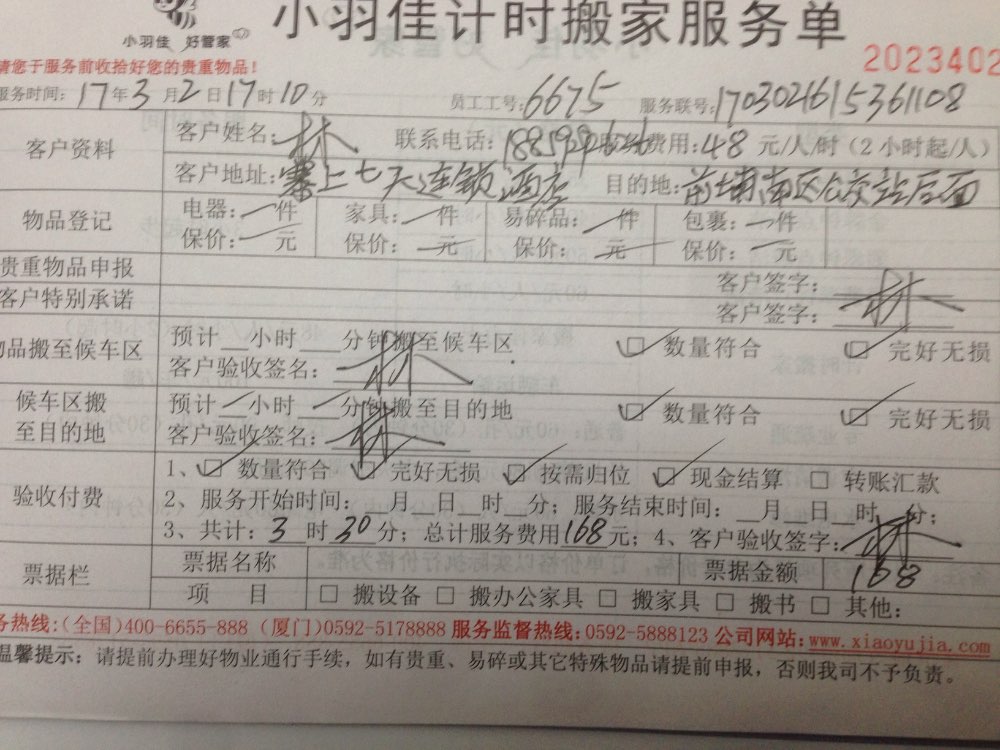 小羽佳计时搬家服务单
小羽佳 好管家
2023402
请您于服务前收拾好您的贵重物品！
服务时间：17年3月2日17时10分 员工工号：6675 服务联号：170302615361108
客户资料 客户姓名：林 联系电话： 费用：48元/人/时（2小时起/人）
客户地址：寨上七天连锁酒店 目的地：前埔南区公交站后面
物品登记 电器：一件 家具：一件 易碎品：一件 包裹：一件
保价：一元 保价：一元 保价：一元 保价：一元
贵重物品申报 客户签字：
客户特别承诺 客户签字：林
物品搬至候车区 预计__小时___分钟搬至候车区 ☑ 数量符合 ☑ 完好无损
客户验收签名：林
候车区搬至目的地 预计__小时__分钟搬至目的地 ☑ 数量符合 ☑ 完好无损
客户验收签名：林
验收付费 1、☑ 数量符合 ☑ 完好无损 ☑ 按需归位 ☑ 现金结算 □ 转账汇款
2、服务开始时间：__月__日__时__分；服务结束时间：__月__日__时__分；
3、共计：3时30分；总计服务费用168元；4、客户验收签字：林
票据栏 票据名称 票据金额 168
项目 □ 搬设备 □ 搬办公家具 □ 搬家具 □ 搬书 □ 其他：
务热线：(全国)400-6655-888 (厦门)0592-5178888 服务监督热线：0592-5888123 公司网站：www.xiaoyujia.com
温馨提示：请提前办理好物业通行手续，如有贵重、易碎或其它特殊物品请提前申报，否则我司不予负责。